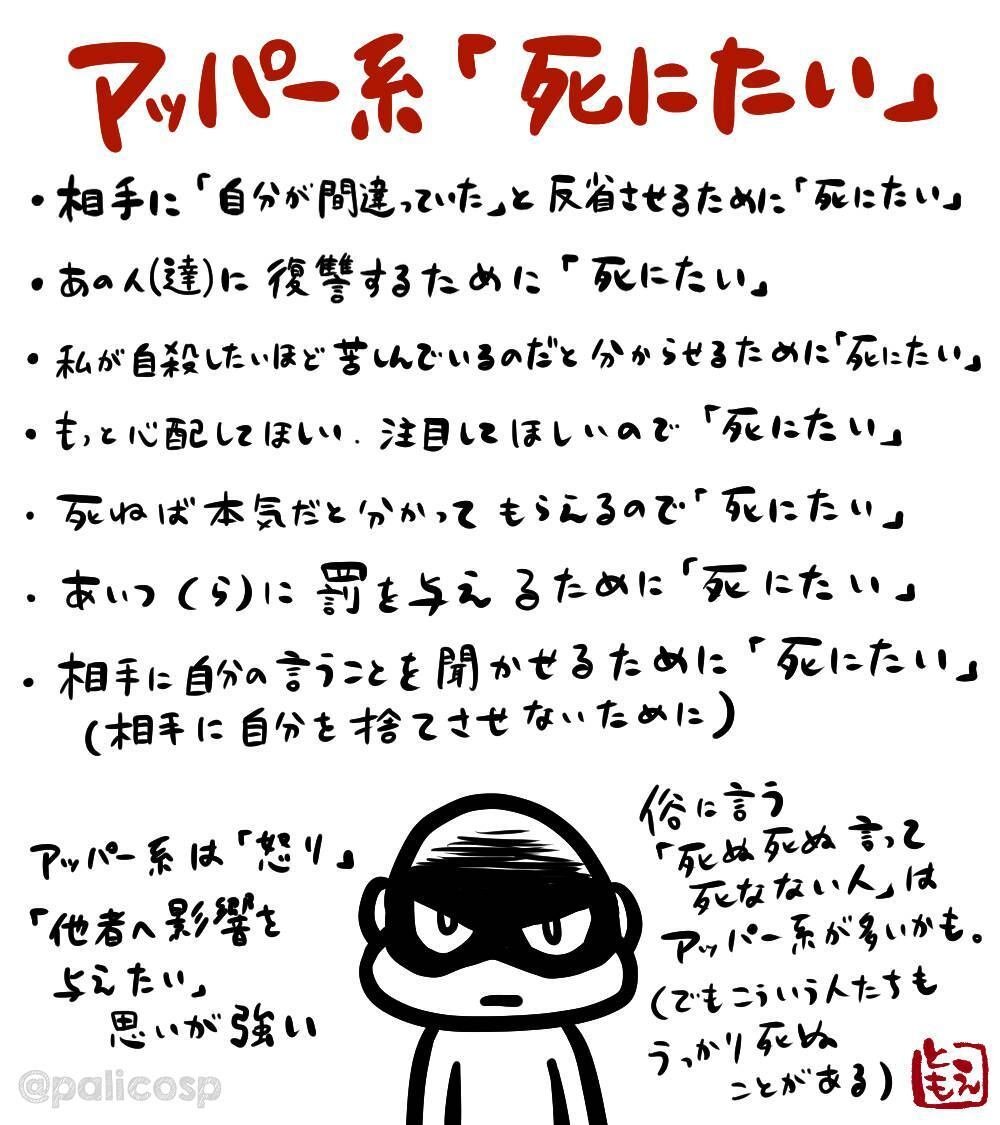 アッパー系「死にたい」
・相手に「自分が間違っていた」と反省させるために「死にたい」
・あの人(達)に復讐するために「死にたい」
・私が自殺したいほど苦しんでいるのだと分からせるために「死にたい」
・もっと心配してほしい.注目してほしいので「死にたい」
・死ねば本気だと分かってもらえるので「死にたい」
・あいつ(ら)に罰を与えるために「死にたい」
・相手に自分の言うことを聞かせるために「死にたい」
(相手に自分を捨てさせないために)
アッパー系は「怒り」
「他者へ影響を
与えたい」
思いが強い
俗に言う
「死ぬ死ぬ言って
死なない人」は
アッパー系が多いかも。
(でもこういう人たちも
うっかり死ぬ
ことがある)
@palicosp